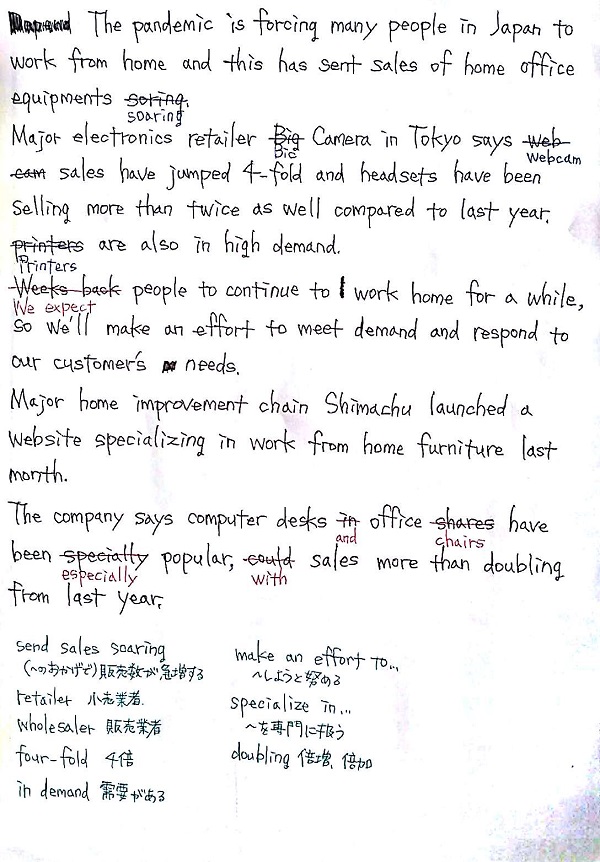 The pandemic is forcing many people in Japan to
work from home and this has sent sales of home office
equipments soring.
soaring
Major electronics retailer Big Camera in Tokyo says web
Bic
Webcam
cam sales have jumped 4-fold and headsets have been
selling more than twice as well compared to last year.
printers are also in high demand.
Printers
Weeks back people to continue to work home for a while,
We expect
so we'll make an effort to meet demand and respond to
our customer's needs.
Major home improvement chain Shimachu launched a
website specializing in work from home furniture last
month.
The company says computer desks in office shares have
and
chairs
been specially popular, could sales more than doubling
especially
with
from last year.
send sales soaring
(〜のおかげで)販売数が急増する
retailer 小売業者
wholesaler 販売業者
four-fold 4倍
in demand 需要がある
make an effort to...
〜しようと努める
specialize in...
〜を専門に扱う
doubling 倍増、倍加